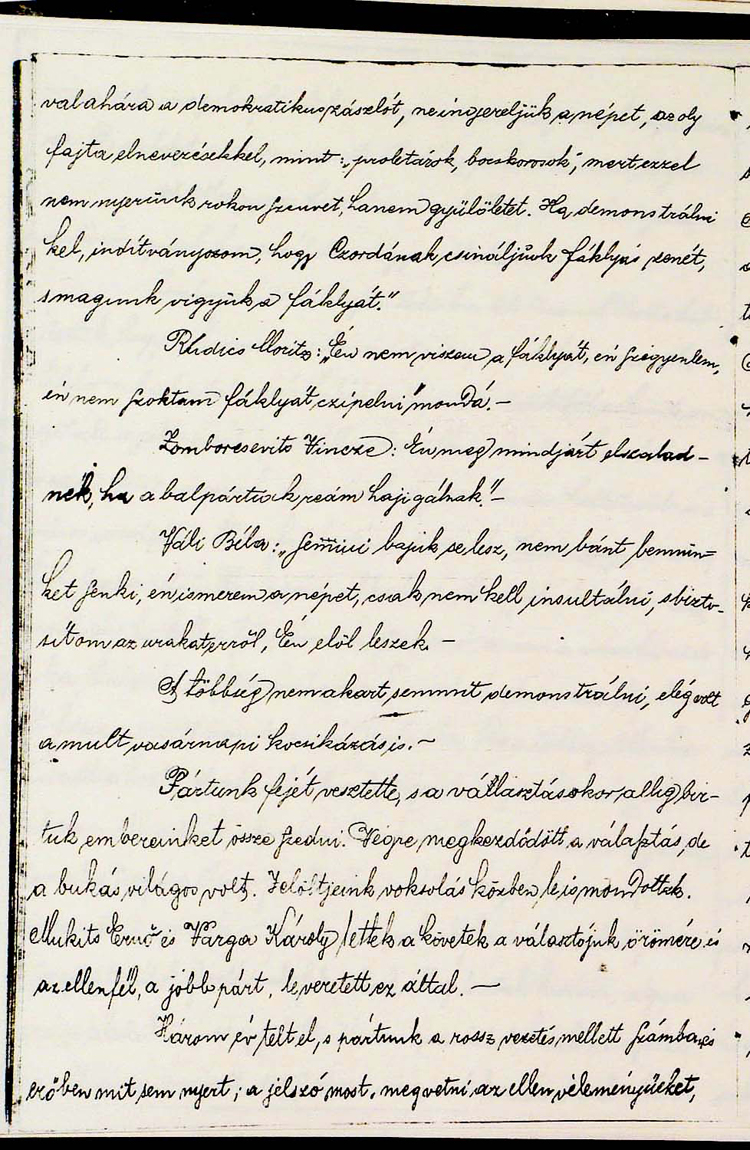 valahára a demokratikus zászlót, ne ingereljük a népet, az oly
fajta elnevezésekkel, mint: „proletárok, bocskorosok", mert ezzel
nem nyerünk rokon szenvet, hanem gyülöletet. Ha demonstrálni
kel, indítványozom, hogy Czordának csináljunk fáklyás zenét,
s magunk vigyük a fáklyát."
Rudics Moritz: „Én nem viszem a fáklyát, én szégyenlem,
én nem szoktam fáklyát czipelni" mondá. —
Zomborcsevits Vincze: Én meg mindjárt elszalad-
nék, ha a balpártiak reám hajigálnak." —
Váli Béla: „Semmi bajuk se lesz, nem bánt bennün=
ket senki, én ismerem a népet, csak nem kell insultálni, s bizto-
sítom az urakat erről, Én elöl leszek. —
A többség nem akart semmit demonstrálni, elég volt
a mult vasárnapi kocsikázás is. —
Pártunk fejét vesztette, s a választásokor allig bir-
tuk embereinket össze szedni. Végre megkezdődött a választás, de
a bukás világos volt. Jelöltjeink voksolás közben le is mondottak.
Mukits Ernő és Varga Károly lettek a követek a választójuk örömére és
az ellenfél, a jobb párt, leveretett ez által. —
Három év telt el, s pártunk a rossz vezetés mellett számba és
erőben mit sem nyert; a jelszó most, megvetni az ellen véleményüeket,